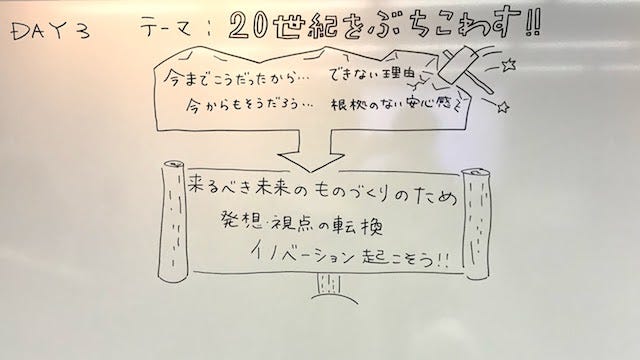 DAY 3 テーマ：20世紀をぶちこわす!!
今までこうだったから… できない理由
今からもそうだろう… 根拠のない安心感
来るべき未来のものづくりのため
発想・視点の転換
イノベーション起こそう!!